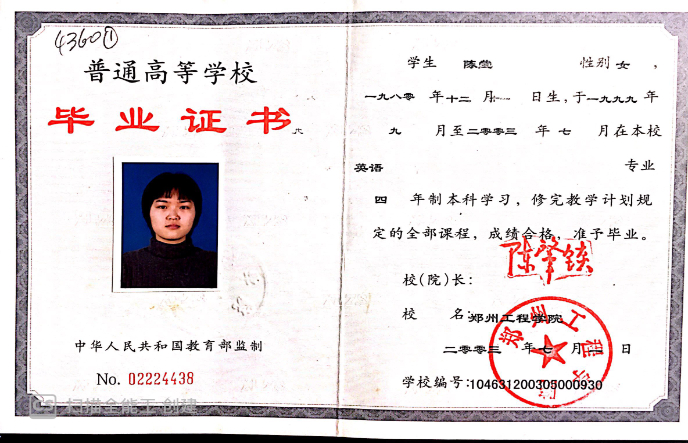 4360①
普通高等学校
毕业证书
中华人民共和国教育部监制
No. 02224438
CS 扫描全能王 创建
学生 陈莹 性别 女，
一九八〇 年 十二 月 一 日生，于 一九九九 年
九 月至 二〇〇三 年 七 月在本校
英语 专业
四 年制本科学习，修完教学计划规
定的全部课程，成绩合格，准予毕业。
校(院)长：
校 名：郑州工程学院
二〇〇三 年 七 月 日
学校编号：104631200305000930
郑州工程学院